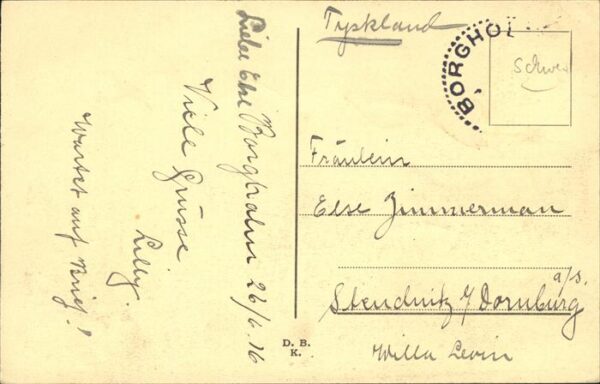 Liebe Else Borgholm 26/6.16
Viele Grüsse
Lilly.
Wartet auf Brief!
Tyskland
BORGHOL
Schwe
Fräulein
Else Zimmerman
a/S.
Steudnitz b/ Dornburg
Willa Levin
D. B.
K.